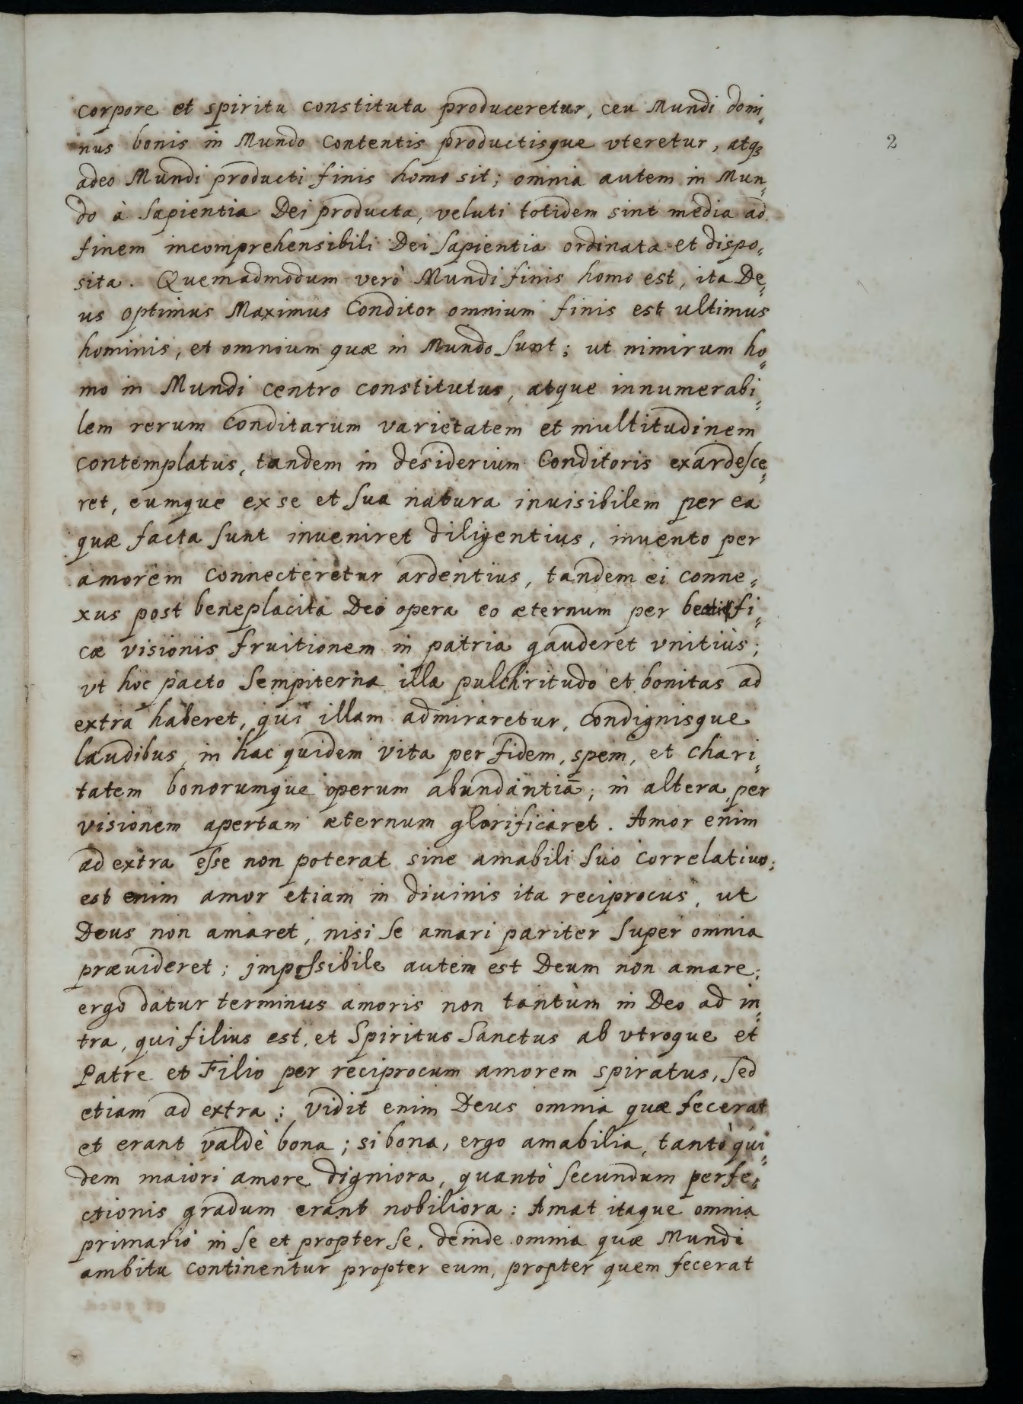 corpore et spiritu constituta produceretur, ceu Mundi domi„
nus bonis in Mundo contentis productisque vteretur, atq3
adeo Mundi producti finis homo sit; omnia autem in Mun„
do à Sapientia Dei producta, veluti totidem sint media ad
finem incomprehensibili Dei Sapientia ordinata et dispo„
sita. Quemadmodum verò Mundi finis homo est, ita De„
us optimus Maximus Conditor omnium finis est ultimus
hominis, et omnium quæ in Mundo sunt; ut nimirum ho„
mo in Mundi centro constitutus, atque innumerabi„
lem rerum conditarum varietatem et multitudinem
contemplatus, tandem in desiderium Conditoris exardesce„
ret, eumque ex se et sua natura inuisibilem per ea
quæ facta sunt inueniret diligentius, inuento per
amorem connecteretur ardentius, tandem ei conne„
xus post beneplacita Deo opera eo æternum per beatifi„
cæ visionis fruitionem in patria gauderet vnitiùs;
vt hoc pacto Sempiterna illa pulchritudo et bonitas ad
extra haberet, qui illam admiraretur, condignisque
laudibus, in hac quidem vita per fidem, spem, et chari„
tatem bonorumque operum abundantiā; in altera, per
visionem apertam æternum glorificaret. Amor enim
ad extra esse non poterat sine amabili suo correlatiuo;
est enim amor etiam in diuinis ita reciprocus, ut
Deus non amaret, nisi se amari pariter super omnia
præuideret; impossibile autem est Deum non amare;
ergo datur terminus amoris non tantùm in Deo ad in„
tra, qui filius est, et Spiritus Sanctus ab vtroque et
Patre et Filio per reciprocum amorem spiratus, sed
etiam ad extra; vidit enim Deus omnia quæ fecerat
et erant valdè bona; si bona, ergo amabilia, tantò qui„
dem maiori amore digniora, quantò secundum perfe„
ctionis gradum erant nobiliora: Amat itaque omnia
primariò in se et propter se, deinde omnia quæ Mundi
ambitu continentur propter eum, propter quem fecerat
2